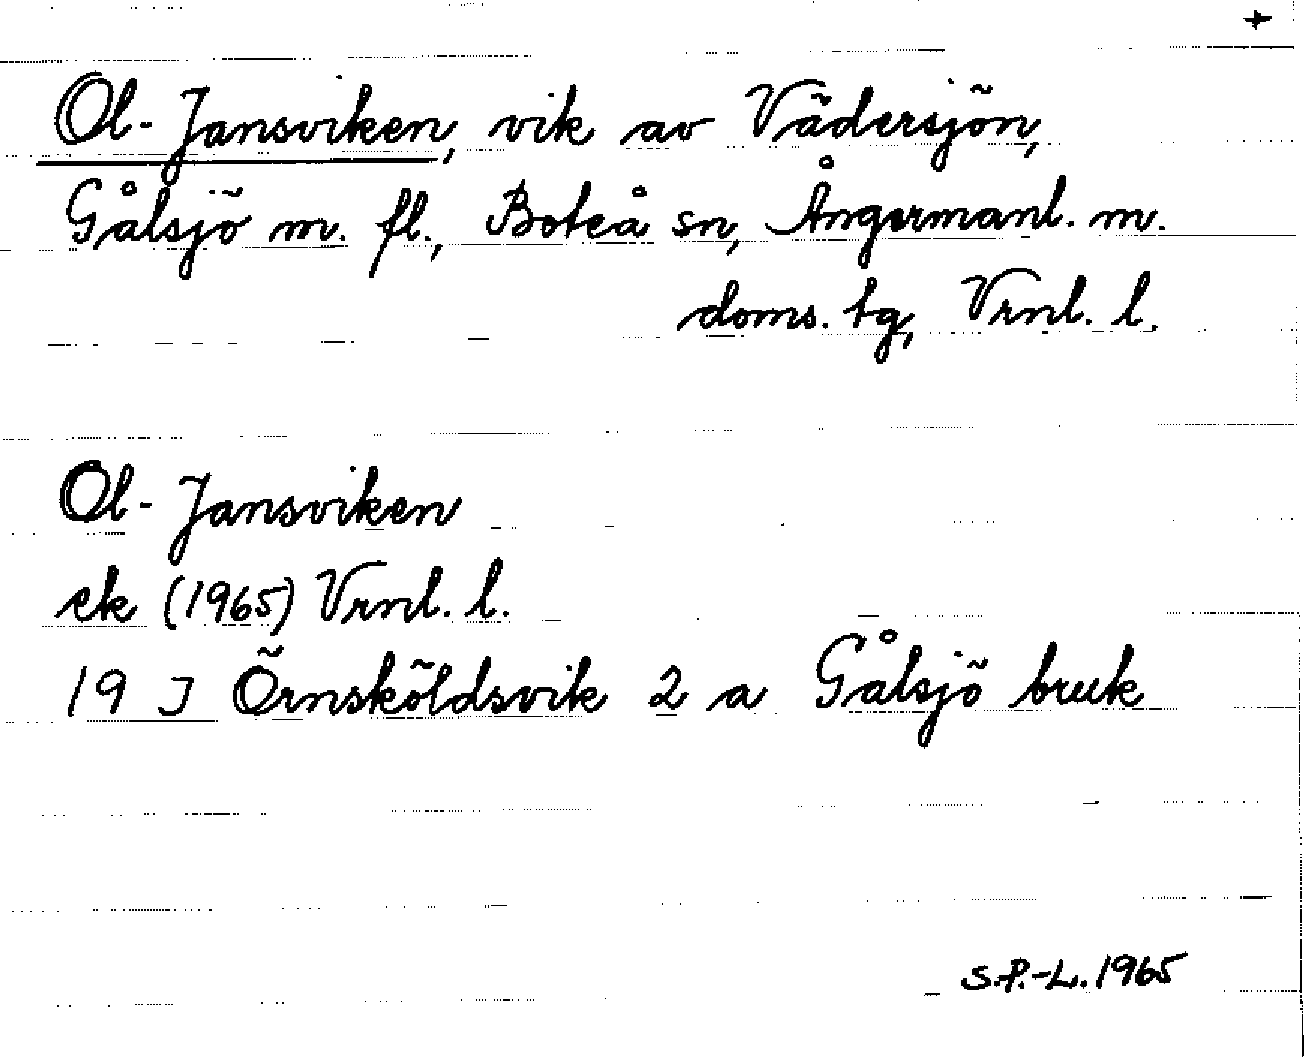 Ol-Jansviken, vik av Vädersjön,
Gålsjö m. fl., Boteå sn, Ångermanl. m.
doms. tg, Vrnl. l.
Ol-Jansviken
ek (1965) Vrnl. l.
19 J Örnsköldsvik 2 a Gålsjö bruk
S.P.-L. 1965